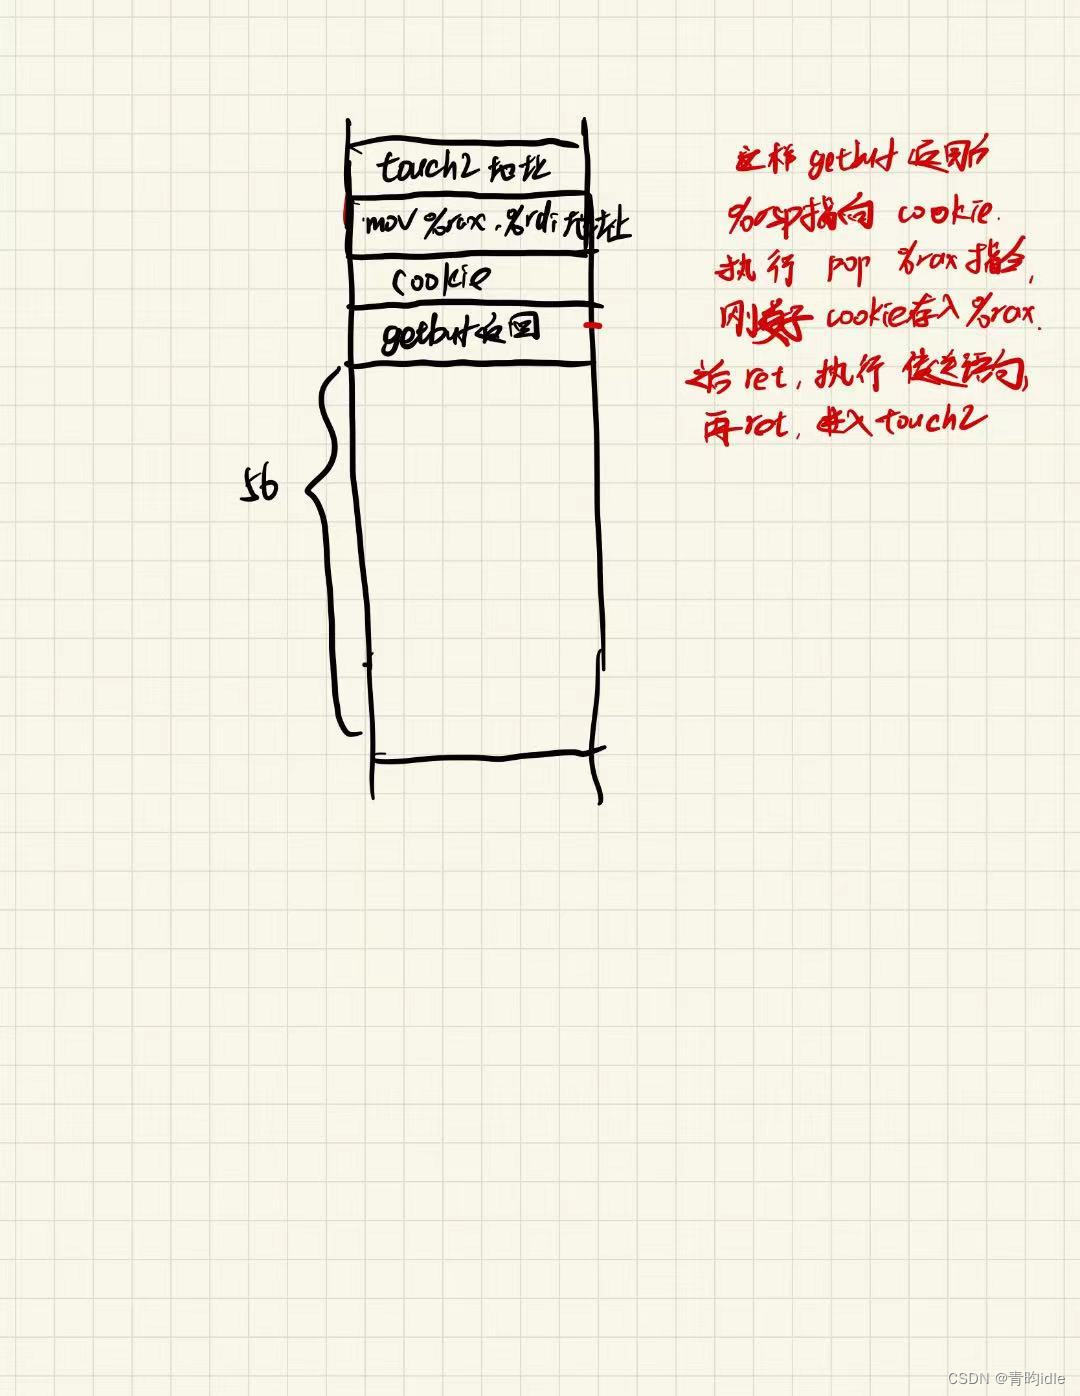 touch2 地址
mov %rax, %rdi 地址
cookie
getbuf 返回
56
这样 getbuf 返回后
%rsp指向 cookie.
执行 pop %rax指令,
刚好 cookie存入 %rax.
之后 ret, 执行 传送语句,
再ret, 进入touch2
CSDN @青昀idle